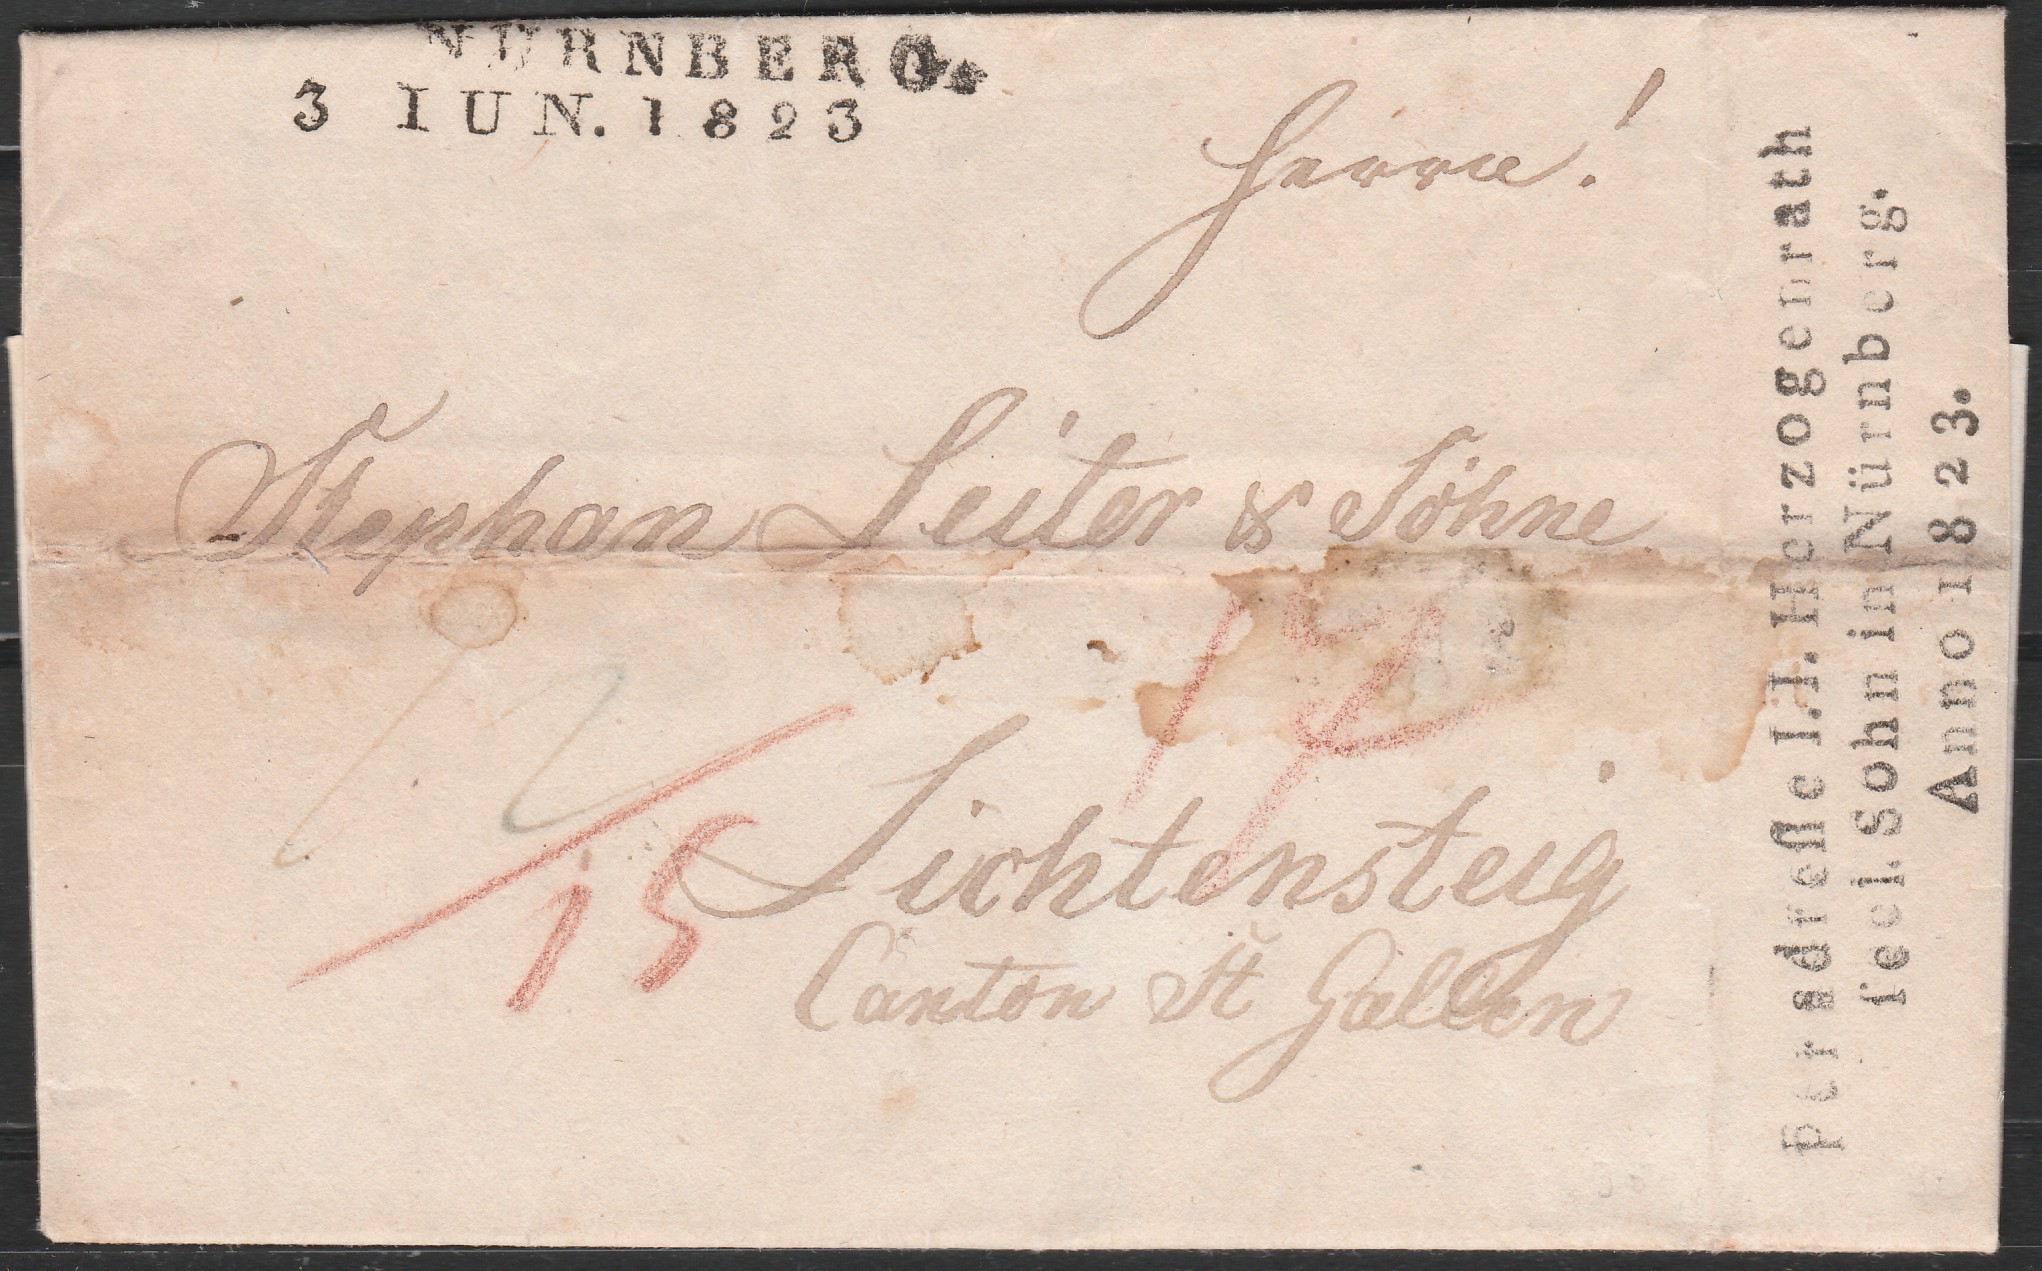 NURNBERG.
3 IUN. 1823
Herrn!
Stephan Leiter & Söhne
14
12
15
Lichtensteig
Canton St Gallen
per adreſſe I. I. Herzogenrath
ſeel. Sohn in Nürnberg.
Anno 1823.